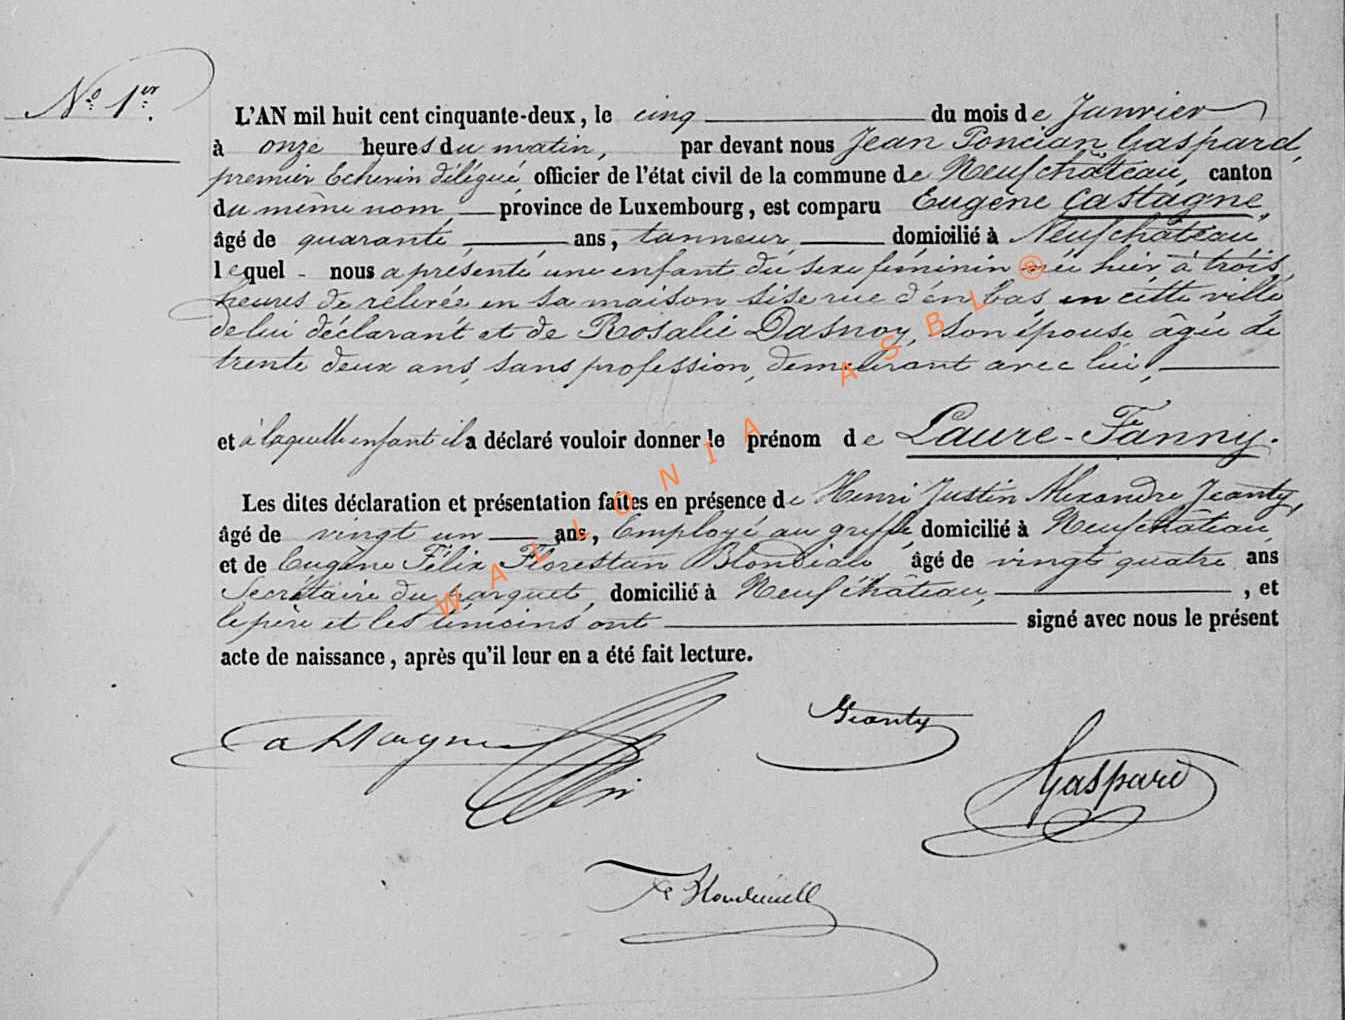 N.º 1.er
L'AN mil huit cent cinquante-deux, le cinq du mois de Janvier
à onze heures du matin, par devant nous Jean Poncian Gaspard,
premier Echevin délégué, officier de l'état civil de la commune de Neufchâteau, canton
du même nom, province de Luxembourg, est comparu Eugène Castagne,
âgé de quarante ans, tanneur, domicilié à Neufchâteau,
lequel nous a présenté une enfant du sexe féminin née hier à trois
heures de relevée en sa maison sise rue d'en bas en cette ville
de lui déclarant et de Rosalie Dasnoy, son épouse âgée de
trente deux ans, sans profession, demeurant avec lui,
et à laquelle enfant il a déclaré vouloir donner le prénom de Laure-Fanny.
Les dites déclaration et présentation faites en présence de Henri Justin Alexandre Jeanty,
âgé de vingt un ans, Employé au greffe, domicilié à Neufchâteau,
et de Eugène Félix Florestan âgé de vingt quatre ans
Secrétaire du parquet, domicilié à Neufchâteau, , et
le père et les témoins ont signé avec nous le présent
acte de naissance, après qu'il leur en a été fait lecture.
Castagne
Jeanty
Gaspard
WALLONIA ASBL ®